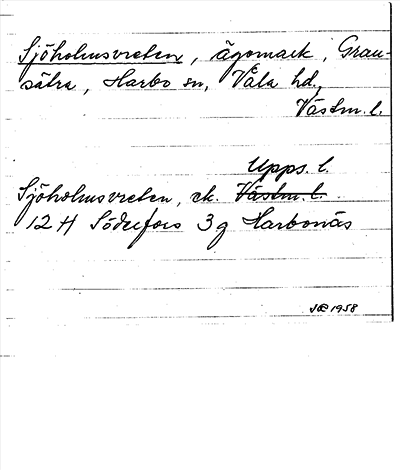 Sjöholmsvreten, ägomark, Gran-
sätra, Harbo sn, Våla hd,
Västm. l.
Upps. l.
Sjöholmsvreten, ek. Västm. l.
12 H Söderfors 3 g Harbonäs
JE 1958